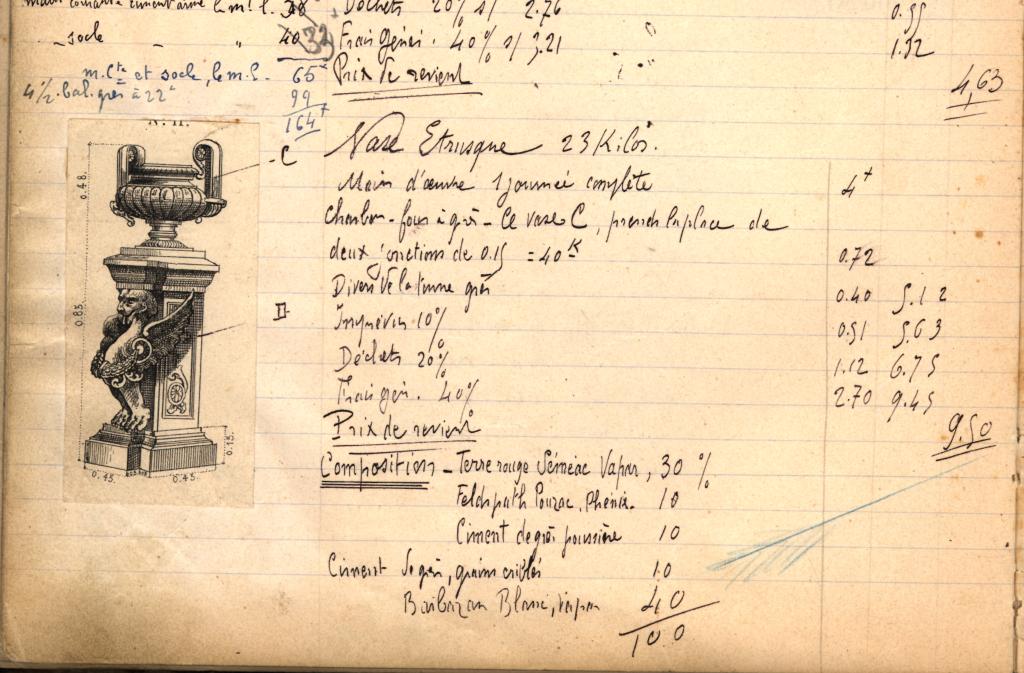 Déchets 20% s/ 2.76 0.55
socle " 40
Frais génér. 40% s/ 3.21 1.32
m. Cte et socle, le m. l. 65
Prix de revient 4,63
4 1/2 bal. grès à 22 99
164
N. 11.
C
Vase Etrusque 23 Kilos.
Main d'œuvre 1 journée complète 4
Charbon - four à grès - Ce vase C, prend la place de
deux jonctions de 0.15 = 40 K 0.72
Divers de la terre grès 0.40 5.12
Imprévus 10% 0.51 5.63
Déchets 20% 1.12 6.75
Frais gén. 40% 2.70 9.45
Prix de revient 9.50
0.48
0.83
D
0.15
0.45 0.45
Composition - Terre rouge Séméac Vapeur, 30 %
Feldspath Pouzac, Phénix. 10
Ciment de grès poussière 10
Ciment de grès, grains criblés 10
Barbazan Blanc, vapeur 40
100